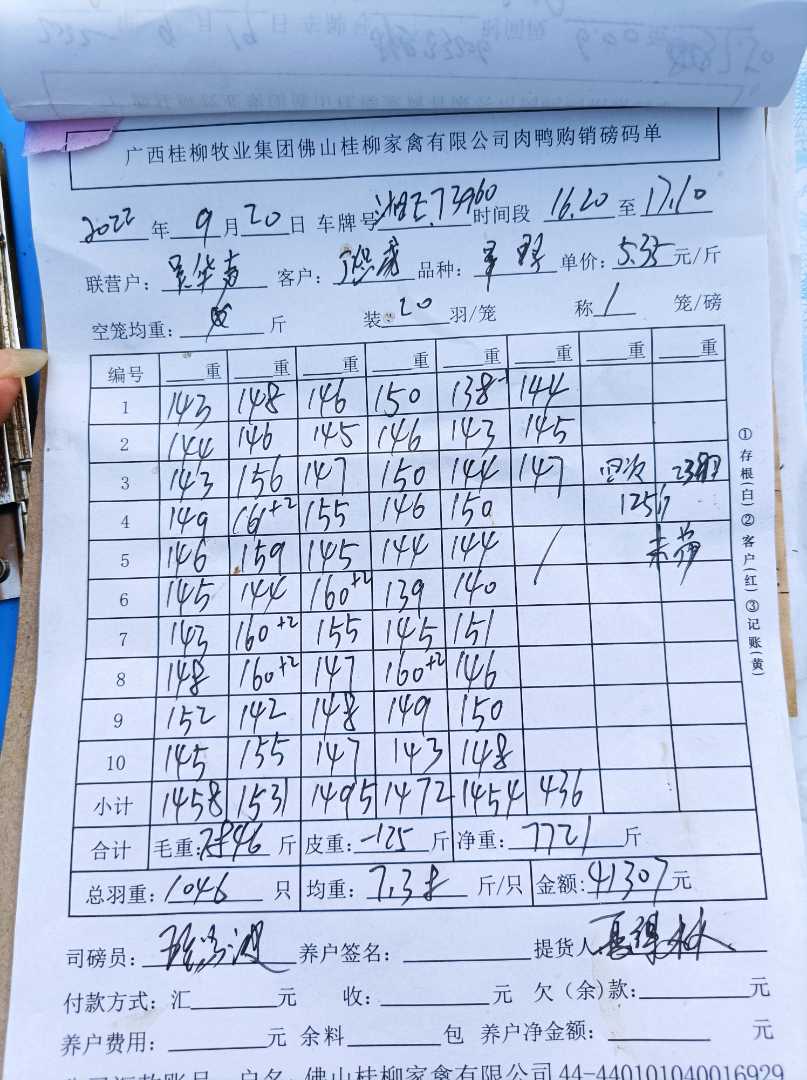 广西桂柳牧业集团佛山桂柳家禽有限公司肉鸭购销磅码单
2022年9月20日 车牌号 湘E73960 时间段 16.20 至 17.10
联营户： 客户： 品种： 单价：5.35元/斤
空笼均重： 斤 装 20 羽/笼 称 1 笼/磅
编号 重 重 重 重 重 重 重 重
1 143 148 146 150 138 144
2 144 146 145 146 143 145
3 143 156 147 150 144 147
4 149 161+2 155 146 150 125
5 146 159 145 144 144 /
6 145 144 160+2 139 140
7 143 160+2 155 145 151
8 148 160+2 147 160+2 146
9 152 142 148 149 150
10 145 155 147 143 148
小计 1458 1531 1495 1472 1454 436
合计 毛重：7846 斤 皮重：-125 斤 净重：7721 斤
总羽重：1046 只 均重：7.38 斤/只 金额：41307元
司磅员： 养户签名： 提货人
付款方式：汇 元 收： 元 欠（余）款： 元
养户费用： 元 余料 包 养户净金额： 元
户名：佛山桂柳家禽有限公司44-440101040016929
①存根(白)②客户(红)③记账(黄)